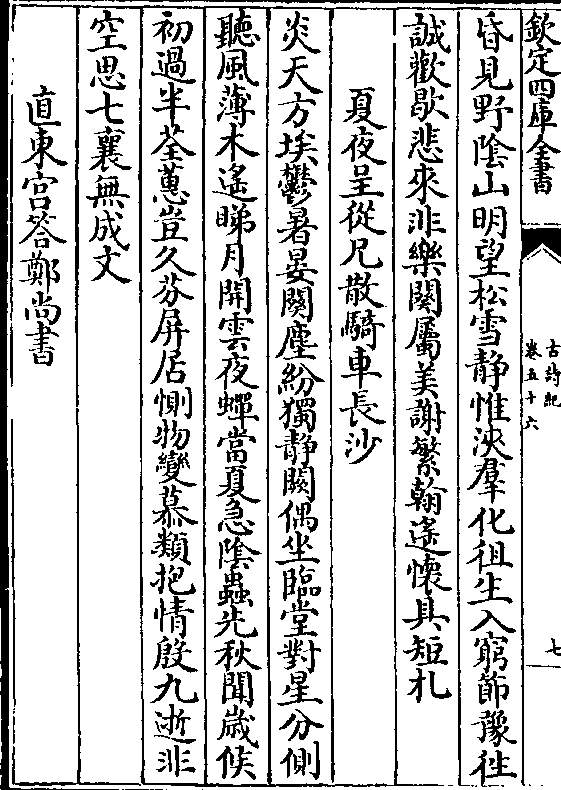 欽定四庫全書
古詩紀
卷五十六
七
昏見野陰山明望松雪静惟浹羣化徂生入窮節豫徃
誠歡歇悲來非樂闋屬美謝繁翰遙懷具短札
夏夜呈從兄散騎車長沙
炎天方埃鬱暑晏闋塵紛獨静闕偶坐臨堂對星分側
聽風薄木遙睇月開雲夜蟬當夏急陰蟲先秋聞歲候
初過半荃蕙豈久芬屏居惻物變慕類抱情殷九逝非
空思七襄無成文
直東宫答鄭尚書